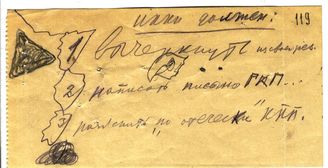 должен: 119
1) вычеркнуть
2) написать письмо ГКП...
3) разъяснить "по отечески" КПП.